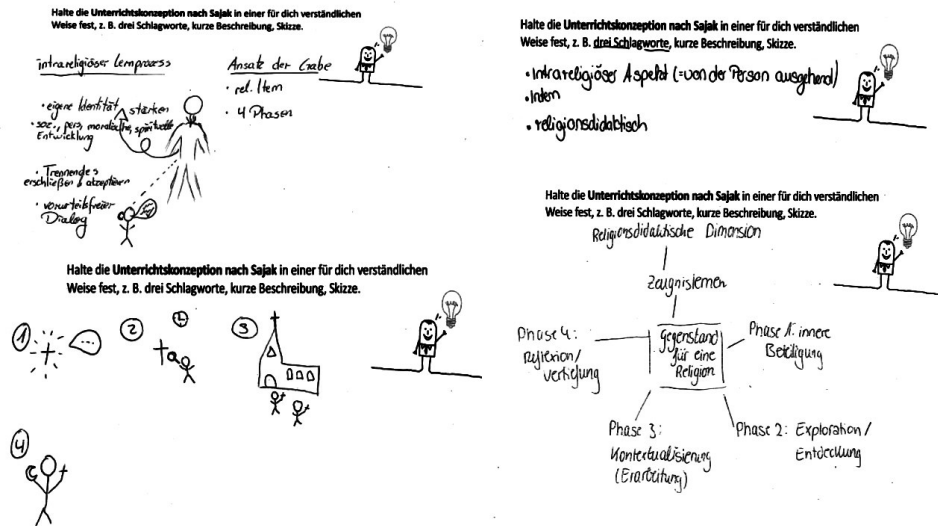 Halte die Unterrichtskonzeption nach Sajak in einer für dich verständlichen
Weise fest, z. B. drei Schlagworte, kurze Beschreibung, Skizze.
intrareligiöser Lernprozess
• eigene Identität stärken
• soz., pers., moralische, spirituelle
Entwicklung
• Trennendes
erschließen & akzeptieren
• vorurteilsfreier
Dialog
Ansatz der Gabe
• rel. Item
• 4 Phasen
Halte die Unterrichtskonzeption nach Sajak in einer für dich verständlichen
Weise fest, z. B. drei Schlagworte, kurze Beschreibung, Skizze.
• Intrareligiöser Aspekt (=von der Person ausgehend)
• Intern
• religionsdidaktisch
Halte die Unterrichtskonzeption nach Sajak in einer für dich verständlichen
Weise fest, z. B. drei Schlagworte, kurze Beschreibung, Skizze.
1
2
3
4
Halte die Unterrichtskonzeption nach Sajak in einer für dich verständlichen
Weise fest, z. B. drei Schlagworte, kurze Beschreibung, Skizze.
Religionsdidaktische Dimension
Zeugnislernen
Gegenstand
für eine
Religion
Phase 1: innere
Beteiligung
Phase 2: Exploration/
Entdeckung
Phase 3:
Kontextualisierung
(Erarbeitung)
Phase 4:
Reflexion/
Vertiefung